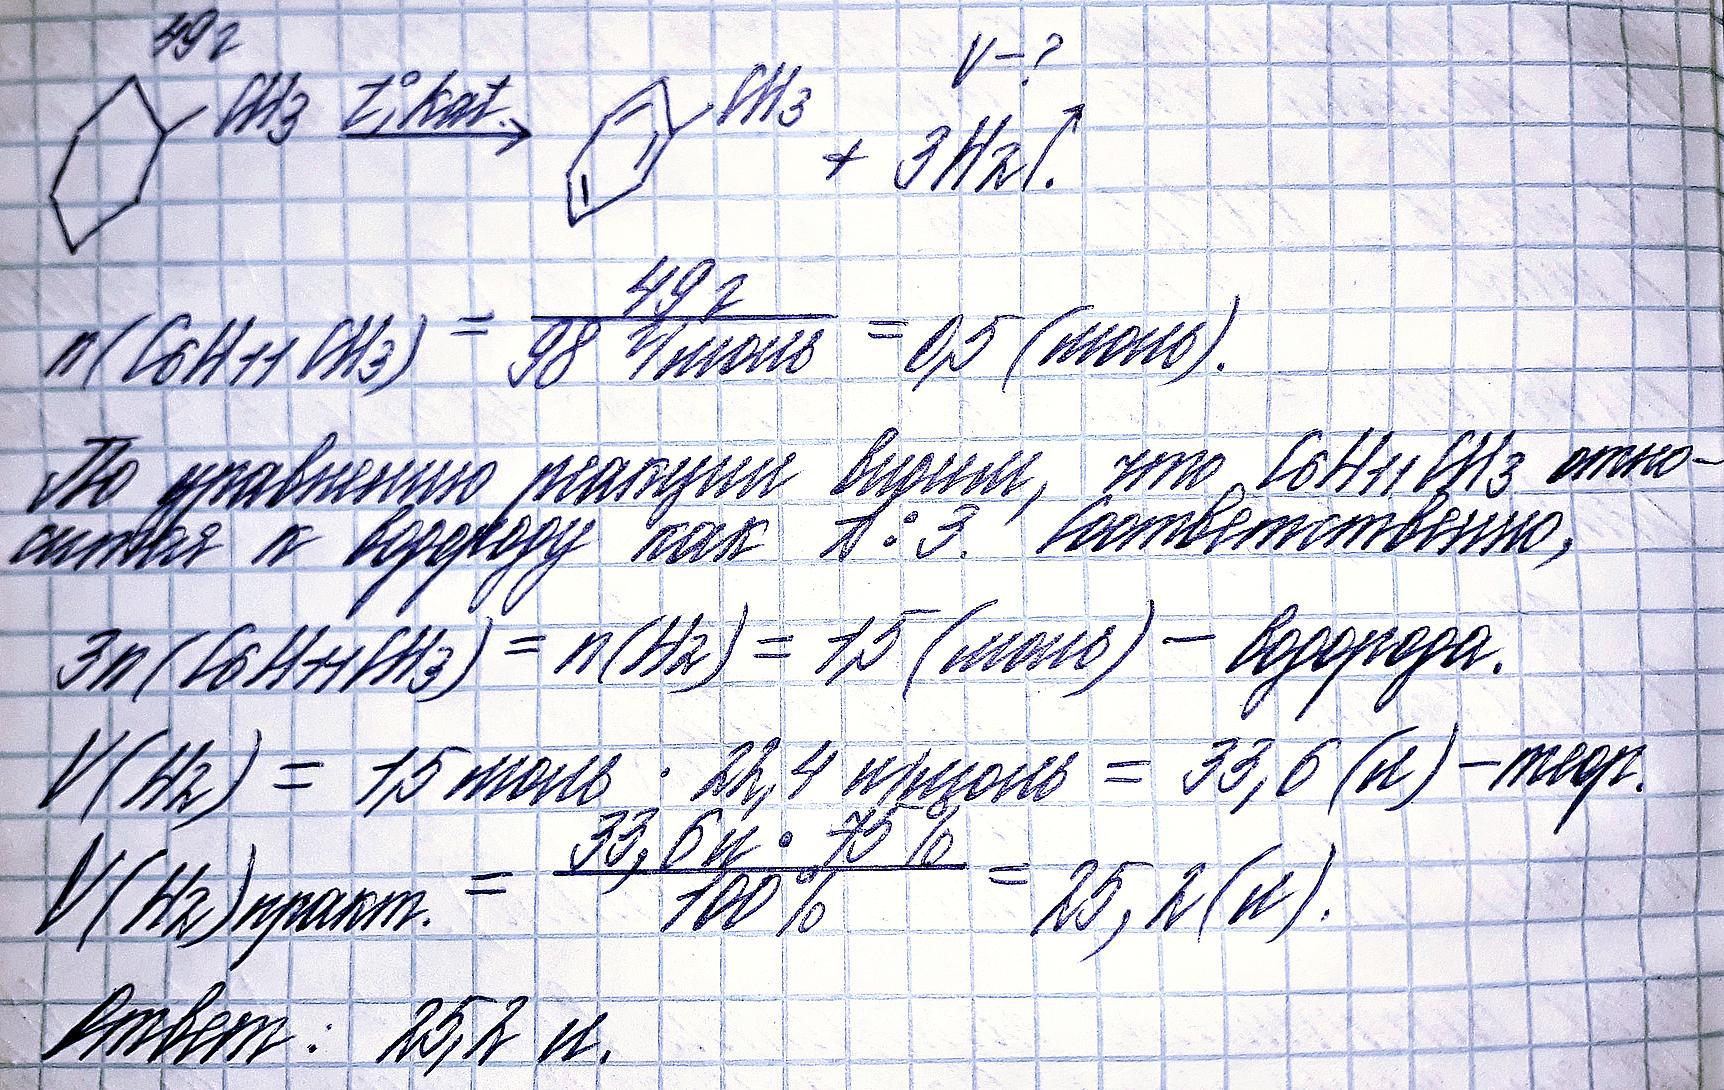 49 г
V-?
CH3 t°, kat. CH3 + 3H2↑.
n(C6H11CH3) = 49 г / 98 г/моль = 0,5 (моль).
По уравнению реакции видим, что C6H11CH3 отно-
сится к водороду как 1:3. Соответственно,
3n(C6H11CH3) = n(H2) = 1,5 (моль) - водорода.
V(H2) = 1,5 моль · 22,4 л/моль = 33,6 (л) - теор.
V(H2)практ. = 33,6 л · 75% / 100% = 25,2 (л).
Ответ: 25,2 л.